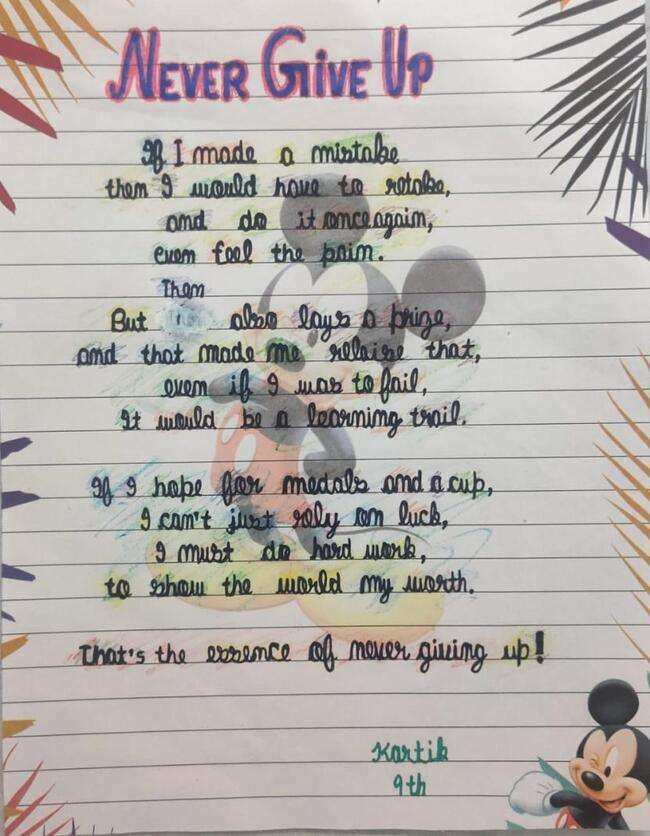 NEVER GIVE UP
If I made a mistake
then I would have to retake,
and do it once again,
even feel the pain.
Then
But also lays a prize,
and that made me relaize that,
even if I was to fail,
It would be a learning trail.
If I hope for medals and a cup,
I can't just rely on luck,
I must do hard work,
to show the world my worth.
That's the essence of never giving up!
Kartik
9th